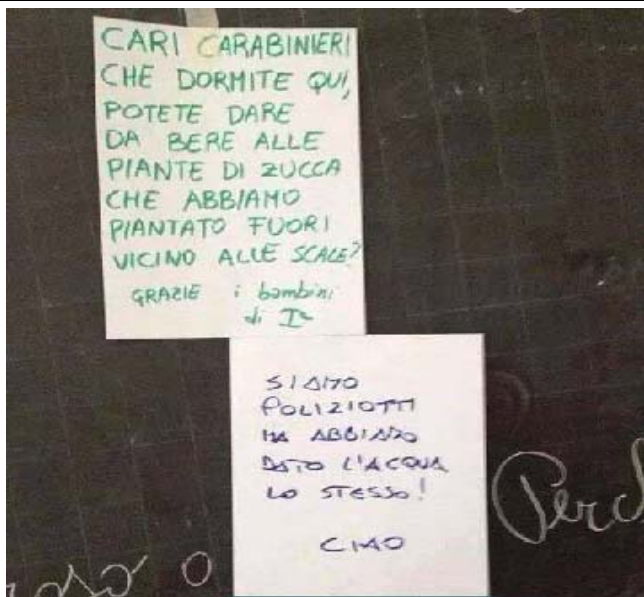 CARI CARABINIERI
CHE DORMITE QUI,
POTETE DARE
DA BERE ALLE
PIANTE DI ZUCCA
CHE ABBIAMO
PIANTATO FUORI
VICINO ALLE SCALE?
GRAZIE i bambini
di Iª
SIAMO
POLIZIOTTI
MA ABBIAMO
DATO L'ACQUA
LO STESSO!
CIAO